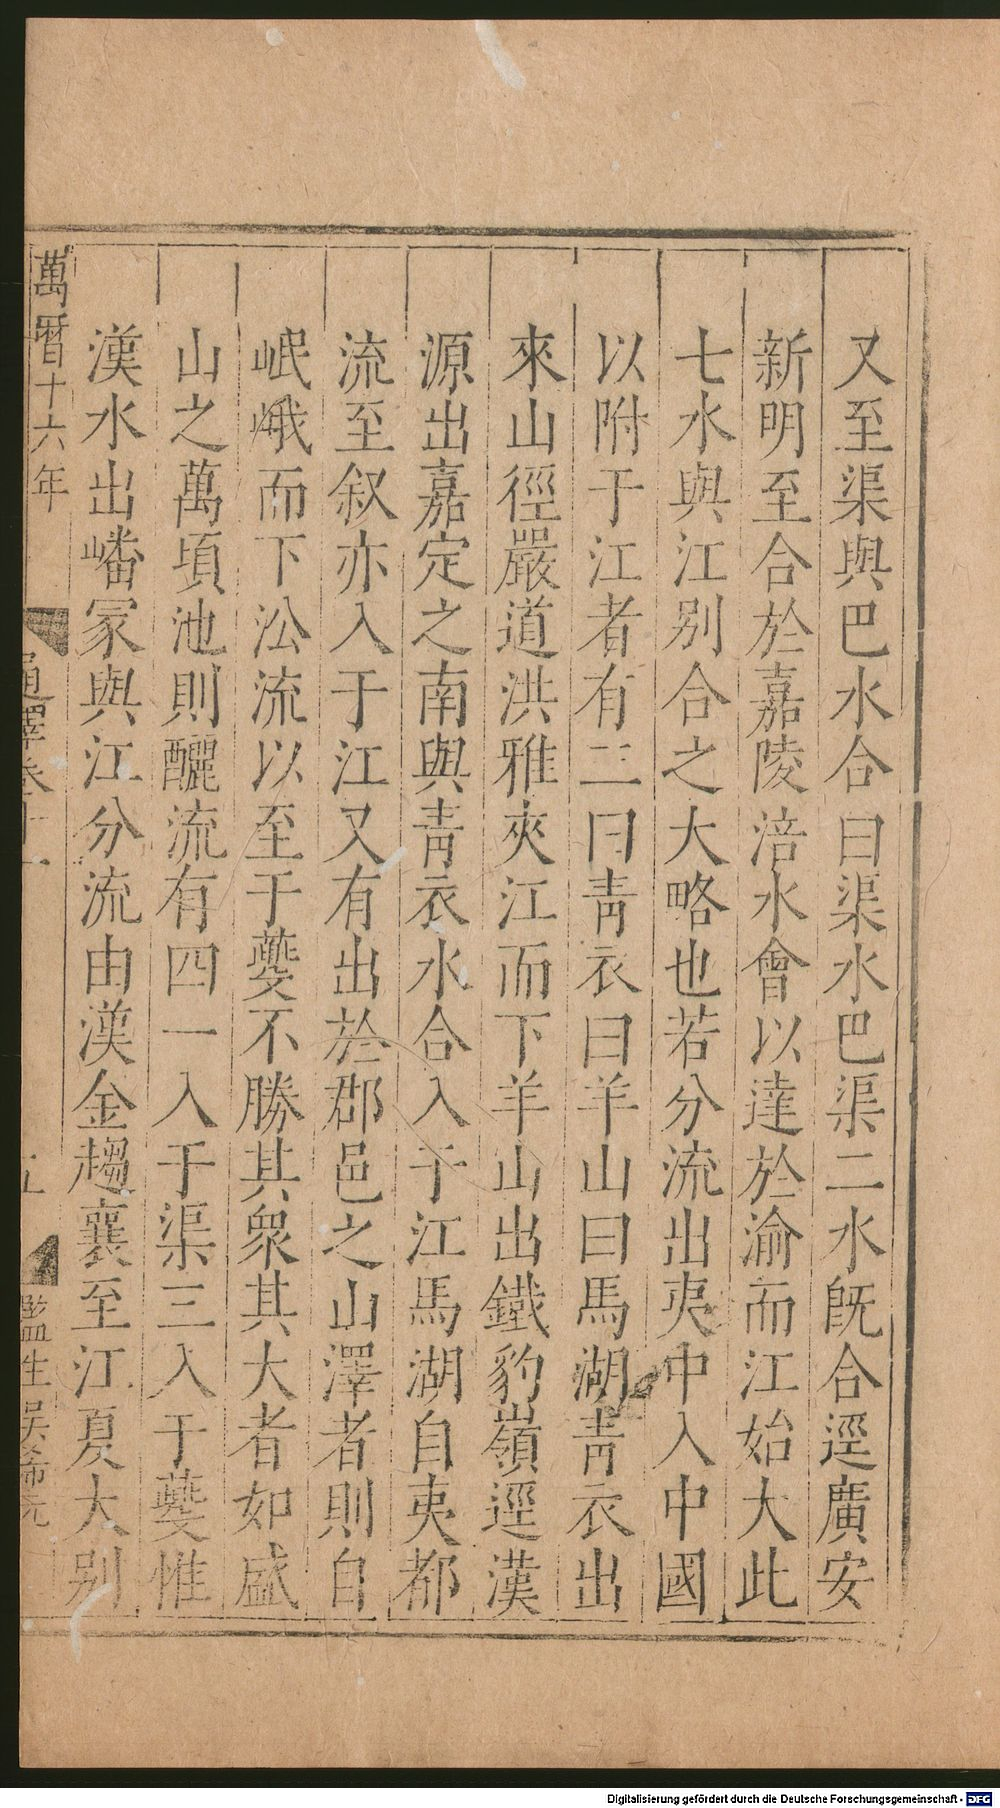 又至渠與巴水合曰渠水巴渠二水旣合逕廣安
新明至合於嘉陵涪水會以達於渝而江始大此
七水與江别合之大略也若分流出夷中入中國
以附于江者有二曰靑衣曰羊山曰馬湖靑衣出
來山徑嚴道洪雅夾江而下羊山出鐵豹嶺逕漢
源出嘉定之南與靑衣水合入于江馬湖自夷都
流至叙亦入于江又有出於郡邑之山澤者則自
岷峨而下㳂流以至于夔不勝其衆其大者如盛
山之萬頃池則釃流有四一入于渠三入于夔惟
漢水出嶓冢與江分流由漢金趨襄至江夏大别
萬曆十六年
通釋卷十一
五
監生吳希元
Digitalisierung gefördert durch die Deutsche Forschungsgemeinschaft - DFG